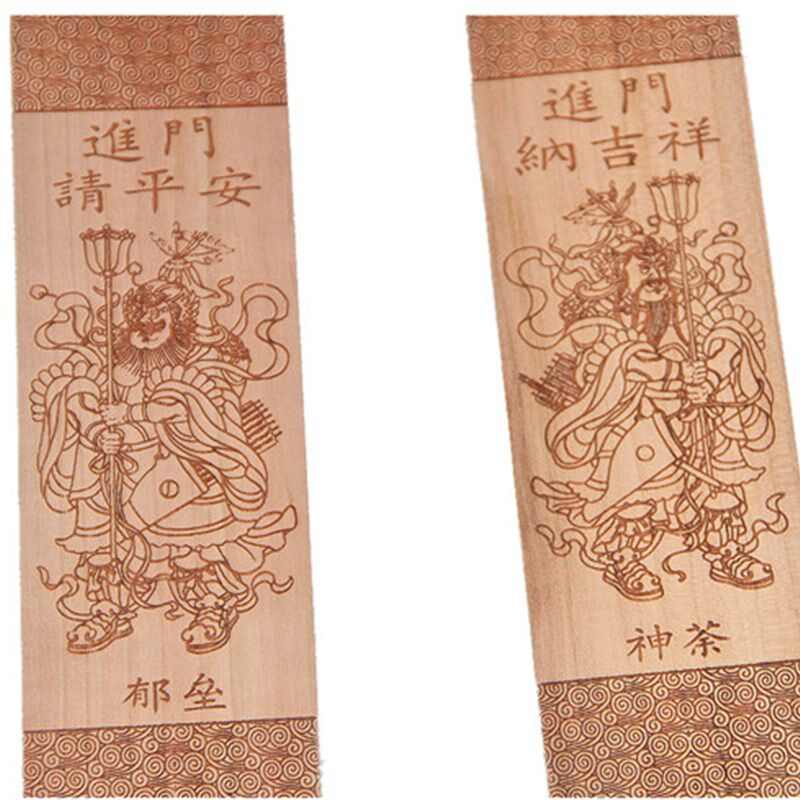 進門
請平安
郁壘
進門
納吉祥
神荼